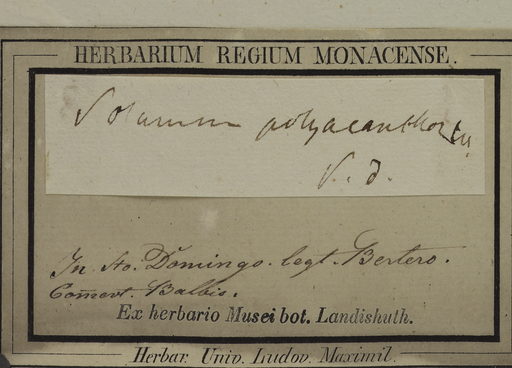 HERBARIUM REGIUM MONACENSE.
Solanum polyacanthos
V. d.
In Sto. Domingo. legt. Bertero.
Comm't. Balbis.
Ex herbario Musei bot. Landishuth.
Herbar. Univ. Ludov. Maximil.